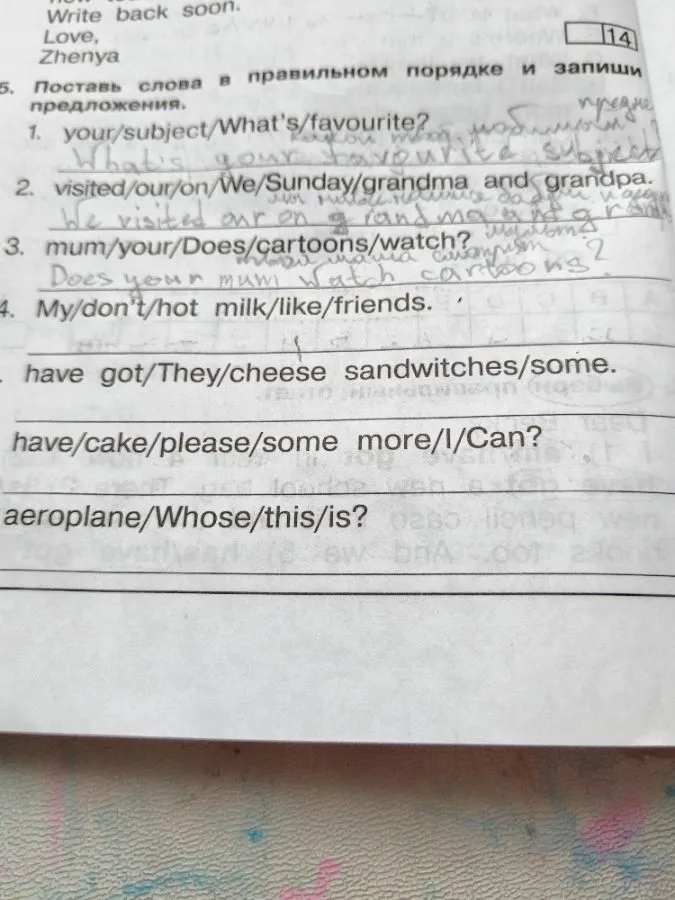 Write back soon.
Love,
Zhenya
14
5. Поставь слова в правильном порядке и запиши
предложения.
1. your/subject/What's/favourite?
What's your favourite subject
2. visited/our/on/We/Sunday/grandma and grandpa.
We visited our on grandma and
3. mum/your/Does/cartoons/watch?
твоя мама смотрит
Does your mum watch cartoons?
4. My/don't/hot milk/like/friends.
have got/They/cheese sandwitches/some.
have/cake/please/some more/I/Can?
aeroplane/Whose/this/is?